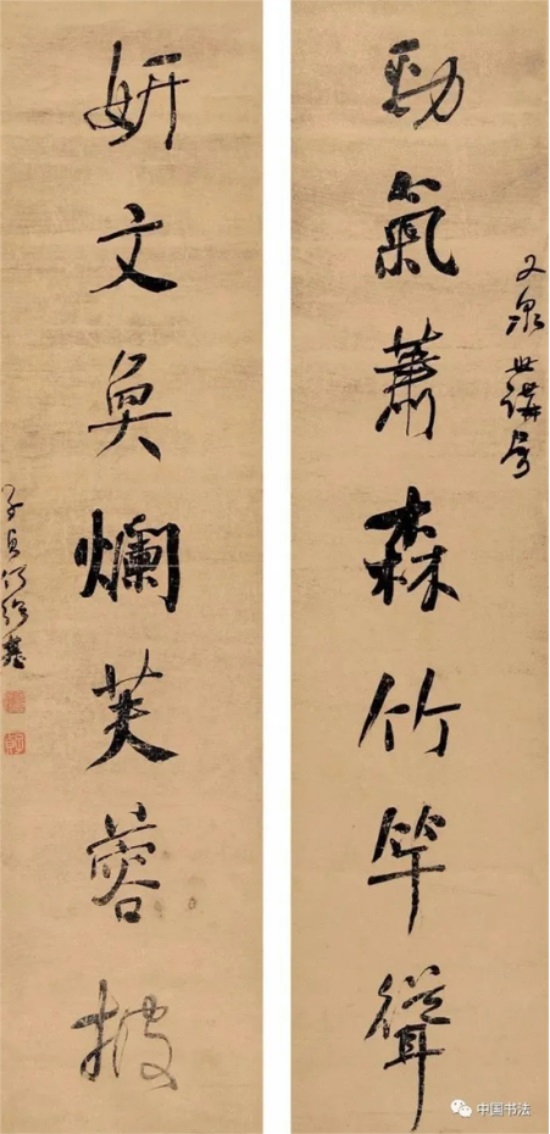 又泉世講屬
勁氣蕭森竹竿聳
妍文奐爛芙蓉披
子貞何紹基
中国书法